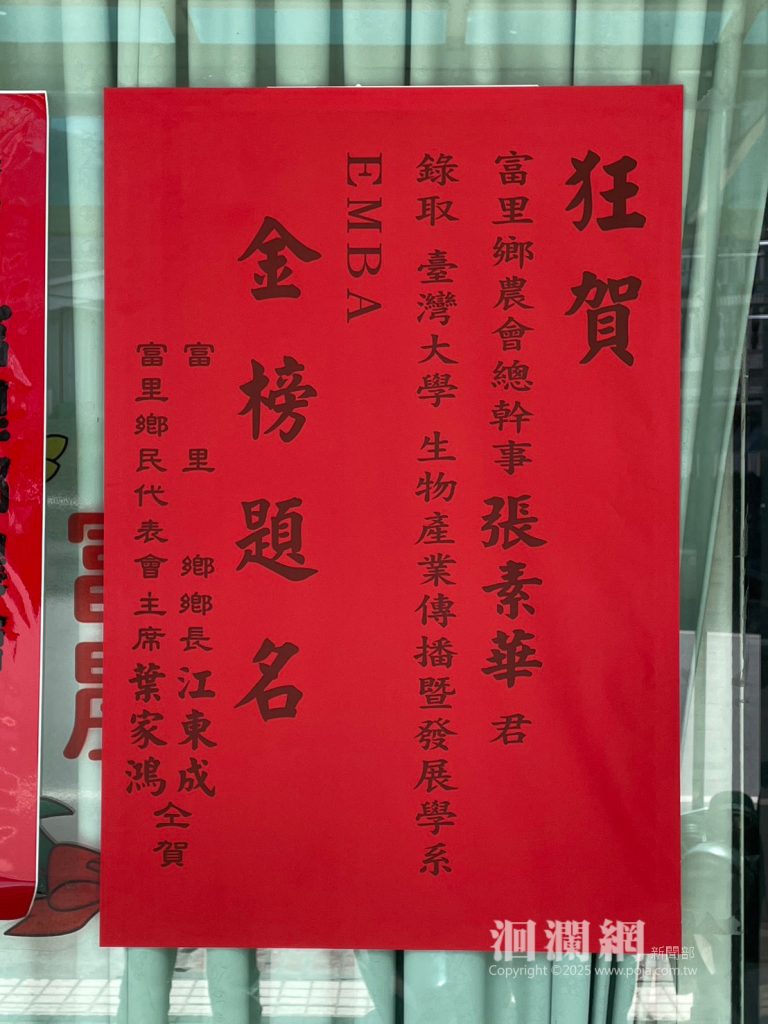 狂賀
富里鄉農會總幹事張素華 君
錄取 臺灣大學 生物產業傳播暨發展學系
EMBA
金榜題名
富里鄉鄉長江東成
富里鄉民代表會主席葉家鴻
仝賀
洄瀾網 新聞部
Copyright ©2025 www.poja.com.tw